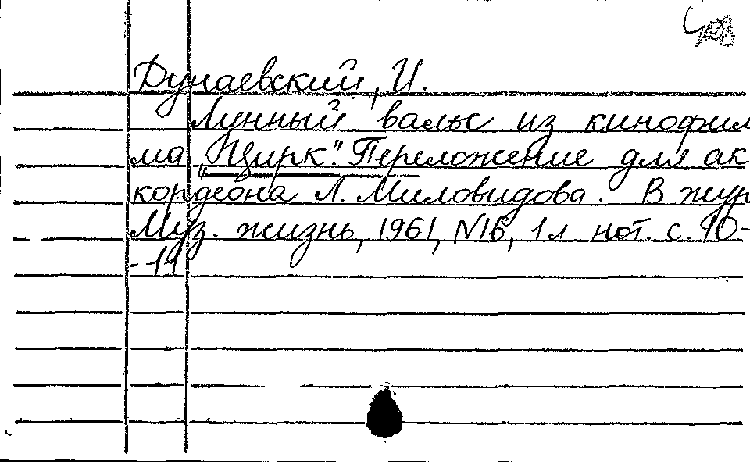 Дунаевский, И.
Лунный вальс из кинофил
ма "Цирк". Переложение для ак
кордеона Л. Миловидова. В жур
Муз. жизнь, 1961, N16, 1 л нот. с. 10-
-11